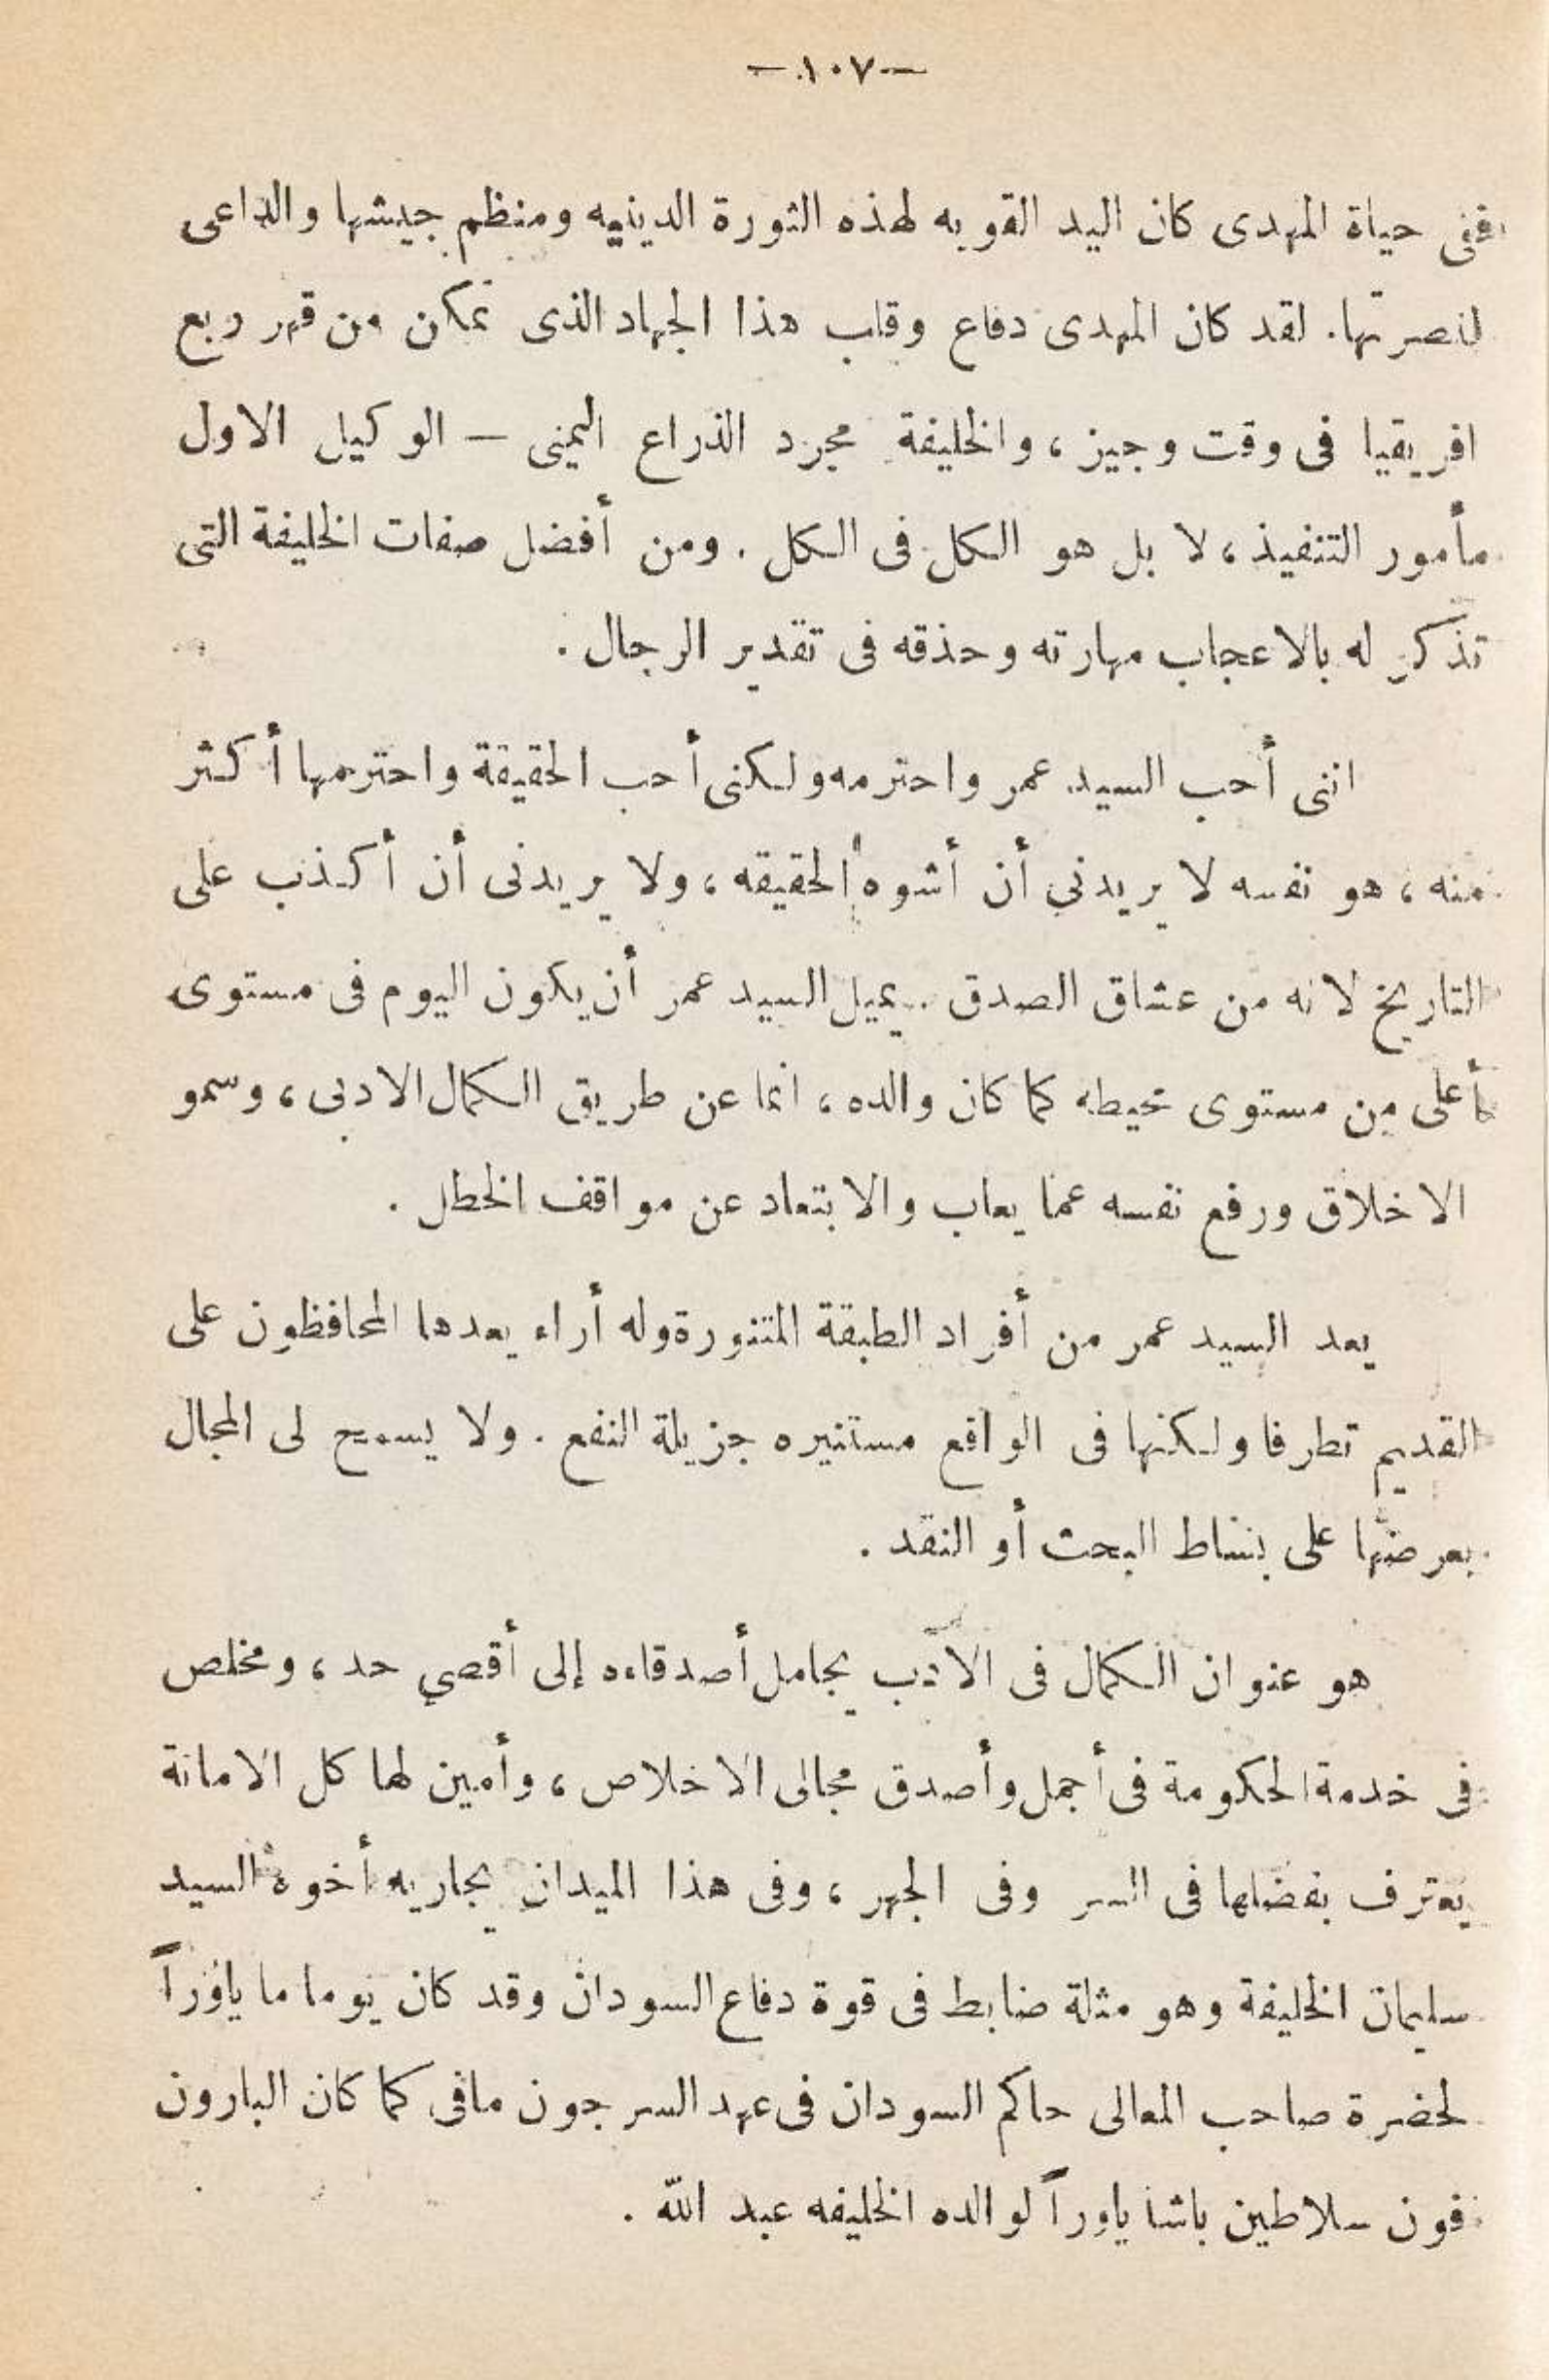 — ١٠٧ —
ففى حياة المهدى كان اليد القويه لهذه الثورة الدينيه ومنظم جيشها والداعى
لنصرتها. لقد كان المهدى دفاع وقلب هذا الجهاد الذى تمكن من قهر ربع
افريقيا فى وقت وجيز ، والخليفة مجرد الذراع اليمنى — الوكيل الاول
مأمور التنفيذ ، لا بل هو الكل فى الكل . ومن أفضل صفات الخليفة التى
تذكر له بالاعجاب مهارته وحذقه فى تقدير الرجال .
اننى أحب السيد عمر واحترمه ولكنى أحب الحقيقة واحترمها أكثر
منه ، هو نفسه لا يريدني أن أشوه الحقيقه ، ولا يريدنى أن أكذب على
التاريخ لانه من عشاق الصدق . يميل السيد عمر أن يكون اليوم فى مستوى
أعلى من مستوى محيطه كما كان والده ، انما عن طريق الكمال الادبى ، وسمو
الاخلاق ورفع نفسه عما يعاب والابتعاد عن مواقف الخطل .
يعد السيد عمر من أفراد الطبقة المتنورة وله أراء يعدها المحافظون على
القديم تطرفا ولكنها فى الواقع مستنيره جزيلة النفع . ولا يسمح لى المجال
بعرضها على بساط البحث أو النقد .
هو عنوان الكمال فى الأدب يجامل أصدقاءه إلى أقصي حد ، ومخلص
فى خدمة الحكومة فى أجمل وأصدق مجالى الاخلاص ، وأمين لها كل الامانة
يعترف بفضلها فى السر وفى الجهر ، وفى هذا الميدان يجاريه أخوه السيد
سليمان الخليفة وهو مثلة ضابط فى قوة دفاع السودان وقد كان يوما ما ياوراً
لحضرة صاحب المعالى حاكم السودان فى عهد السر جون مافى كما كان البارون
فون سلاطين باشا ياوراً لوالده الخليفه عبد الله .